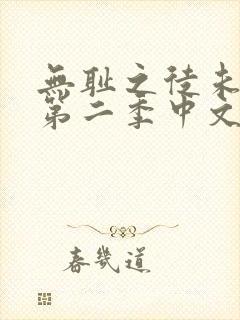 無耻之徒未
第二季中文
春幾道